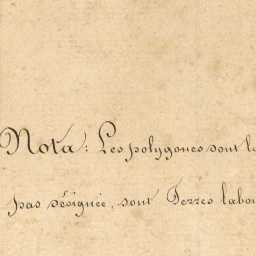 Nota: Les polygones dont la
pas désignée, sont Terres labou